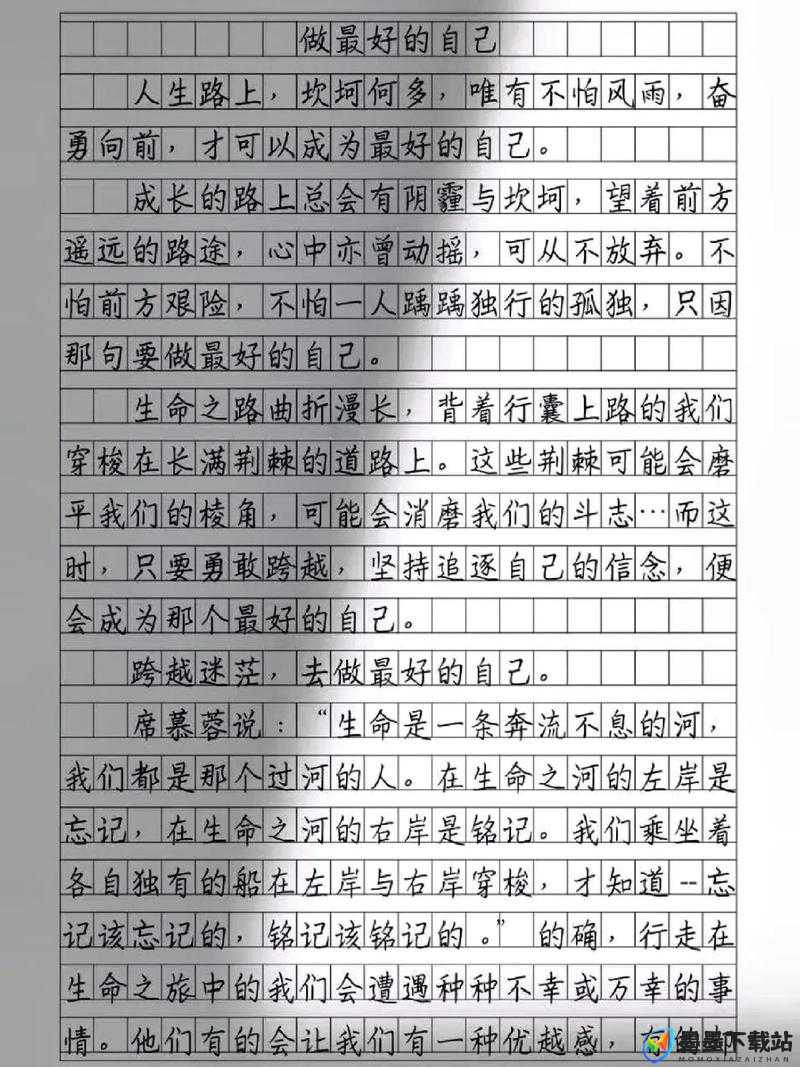 做最好的自己
人生路上，坎坷何多，唯有不怕风雨，奋
勇向前，才可以成为最好的自己。
成长的路上总会有阴霾与坎坷，望着前方
遥远的路途，心中亦曾动摇，可从不放弃。不
怕前方艰险，不怕一人踽踽独行的孤独，只因
那句要做最好的自己。
生命之路曲折漫长，背着行囊上路的我们
穿梭在长满荆棘的道路上。这些荆棘可能会磨
平我们的棱角，可能会消磨我们的斗志…而这
时，只要勇敢跨越，坚持追逐自己的信念，便
会成为那个最好的自己。
跨越迷茫，去做最好的自己。
席慕蓉说：“生命是一条奔流不息的河，
我们都是那个过河的人。在生命之河的左岸是
忘记，在生命之河的右岸是铭记。我们乘坐着
各自独有的船在左岸与右岸穿梭，才知道--忘
记该忘记的，铭记该铭记的。”的确，行走在
生命之旅中的我们会遭遇种种不幸或万幸的事
情。他们有的会让我们有一种优越感，有
墨下载站
MOMOXIAZAIZHAN